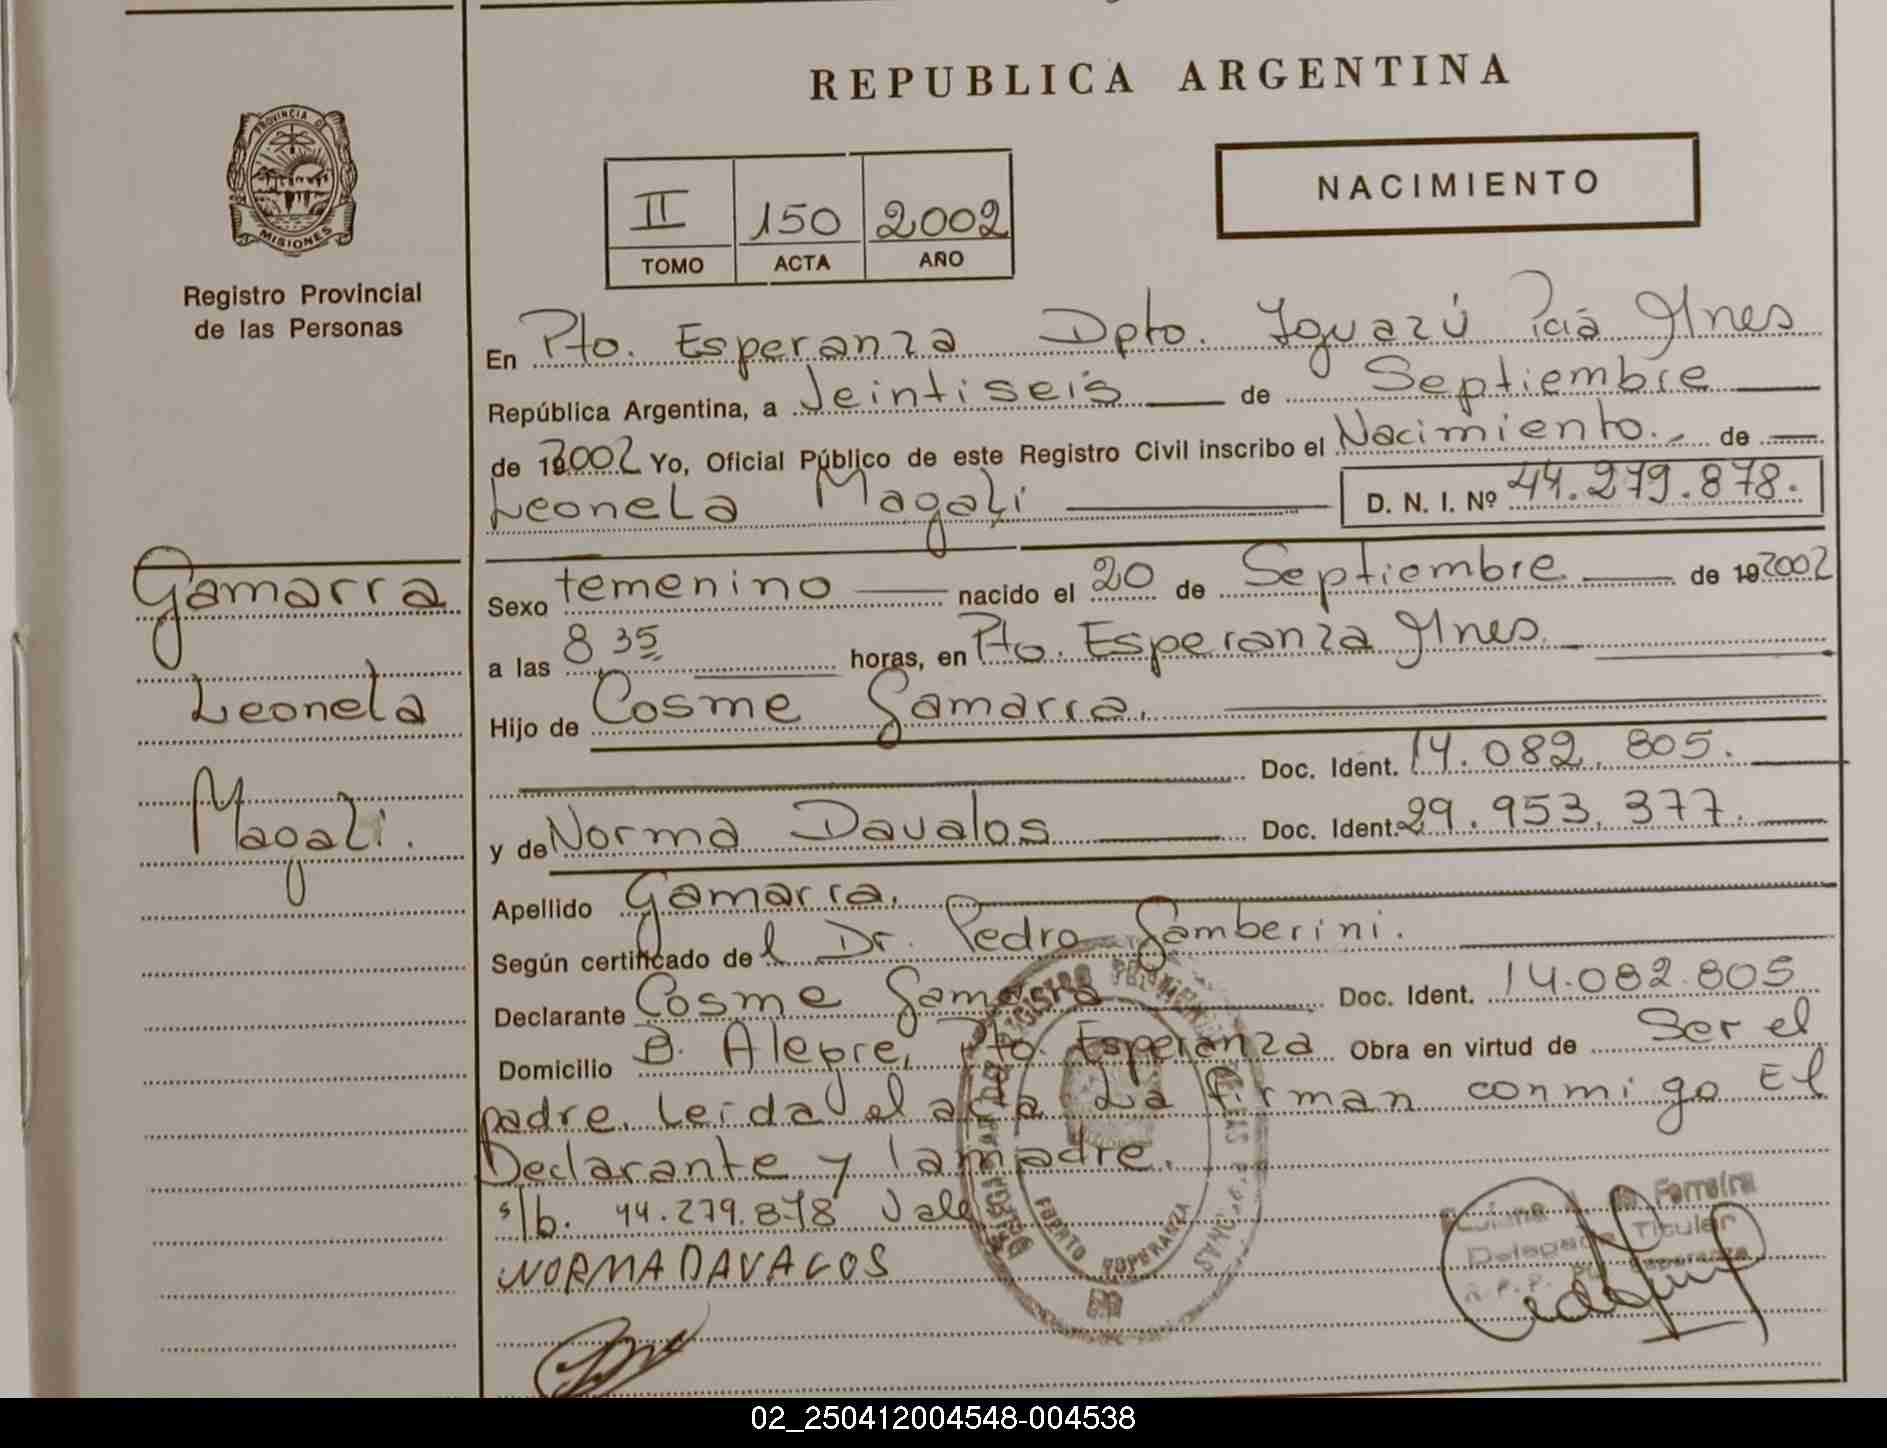 REPUBLICA ARGENTINA
PROVINCIA DE
MISIONES
Registro Provincial
de las Personas
NACIMIENTO
II 150 2002
TOMO ACTA AÑO
En Pto. Esperanza Dpto. Iguazú Pcia Mnes
República Argentina, a Veintiseis de Septiembre
de 2002 Yo, Oficial Público de este Registro Civil inscribo el Nacimiento. de
Leonela Magali D. N. I. Nº 44.279.878.
Gamarra
Leonela
Magali.
Sexo femenino nacido el 20 de Septiembre de 192002
a las 8 35 horas, en Pto. Esperanza Mnes.
Hijo de Cosme Gamarra.
Doc. Ident. 14.082.805.
y de Norma Davalos Doc. Ident. 29.953.377.
Apellido Gamarra.
Según certificado del Dr. Pedro Gamberini.
Declarante Cosme Gamarra Doc. Ident. 14.082.805
Domicilio B. Alegre, Pto. Esperanza Obra en virtud de Ser el
padre. Leida el acta La firman conmigo El
Declarante y la madre.
s/b. 44.279.878 Vale
NORMA DAVALOS
PUERTO ESPERANZA
Ferreira
Titular
02_250412004548-004538